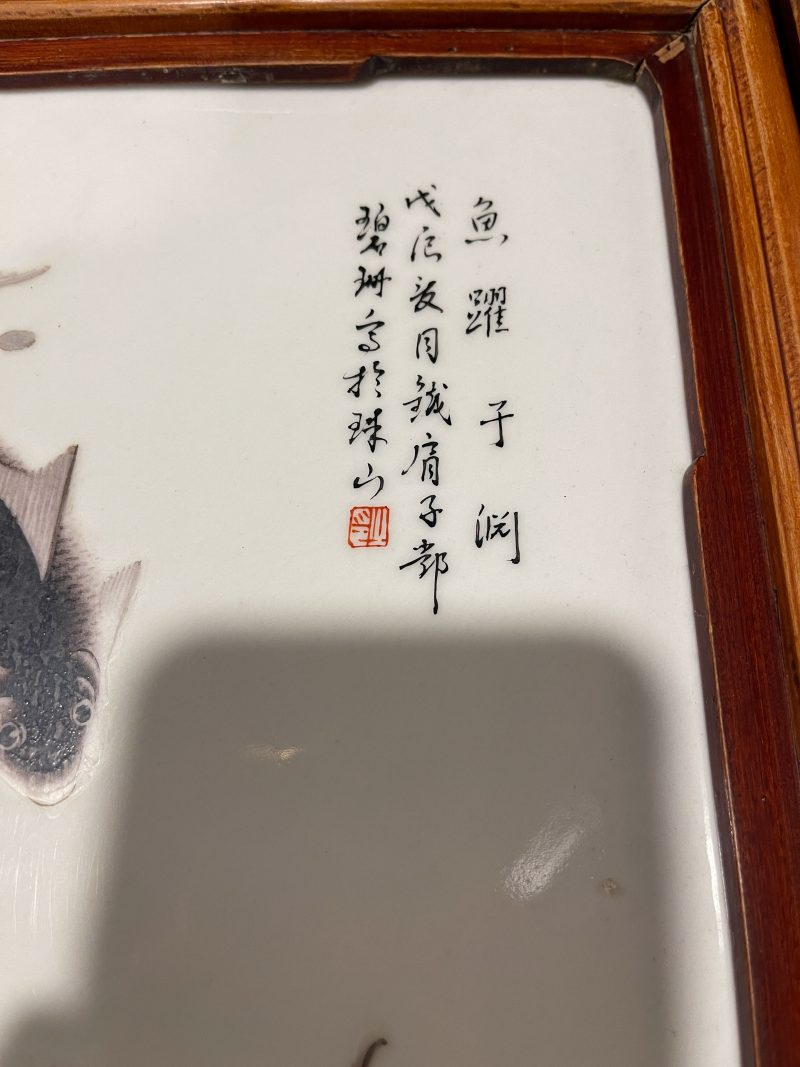 魚躍于淵
戊辰夏月鐵肩子鄧
碧珊寫於珠山